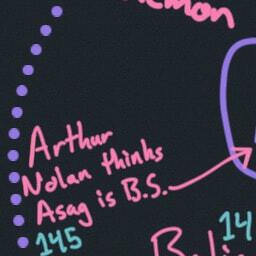 Arthur
Nolan thinks
Asag is B.S.
145
14